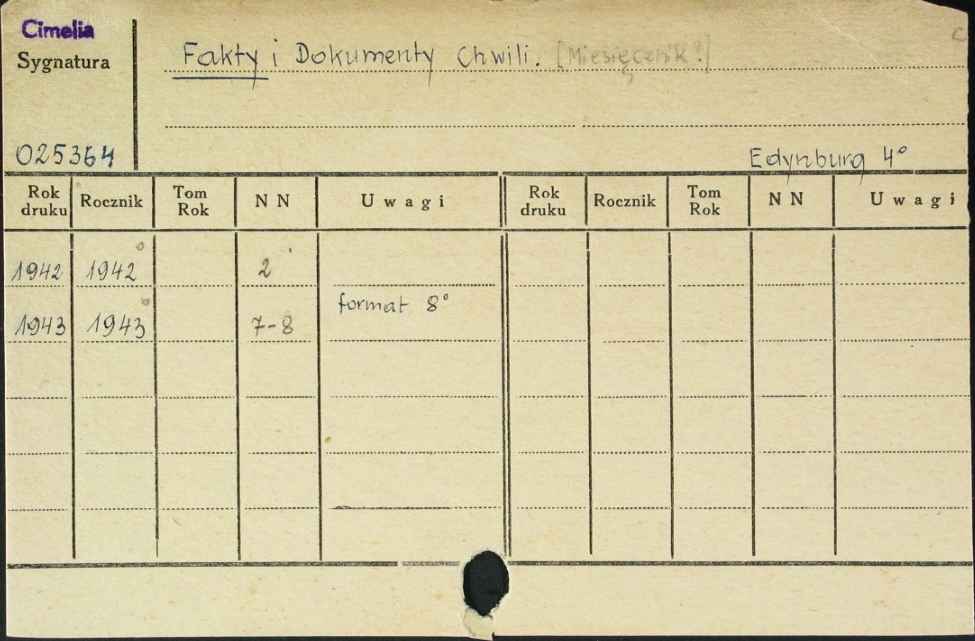 Cimelia
Sygnatura
Fakty i Dokumenty Chwili. [Miesięcznik?]
025364
Edynburg 4°
Rok druku Rocznik Tom Rok N N Uwagi Rok druku Rocznik Tom Rok N N Uwagi
1942 1942° 2
format 8°
1943 1943° 7-8